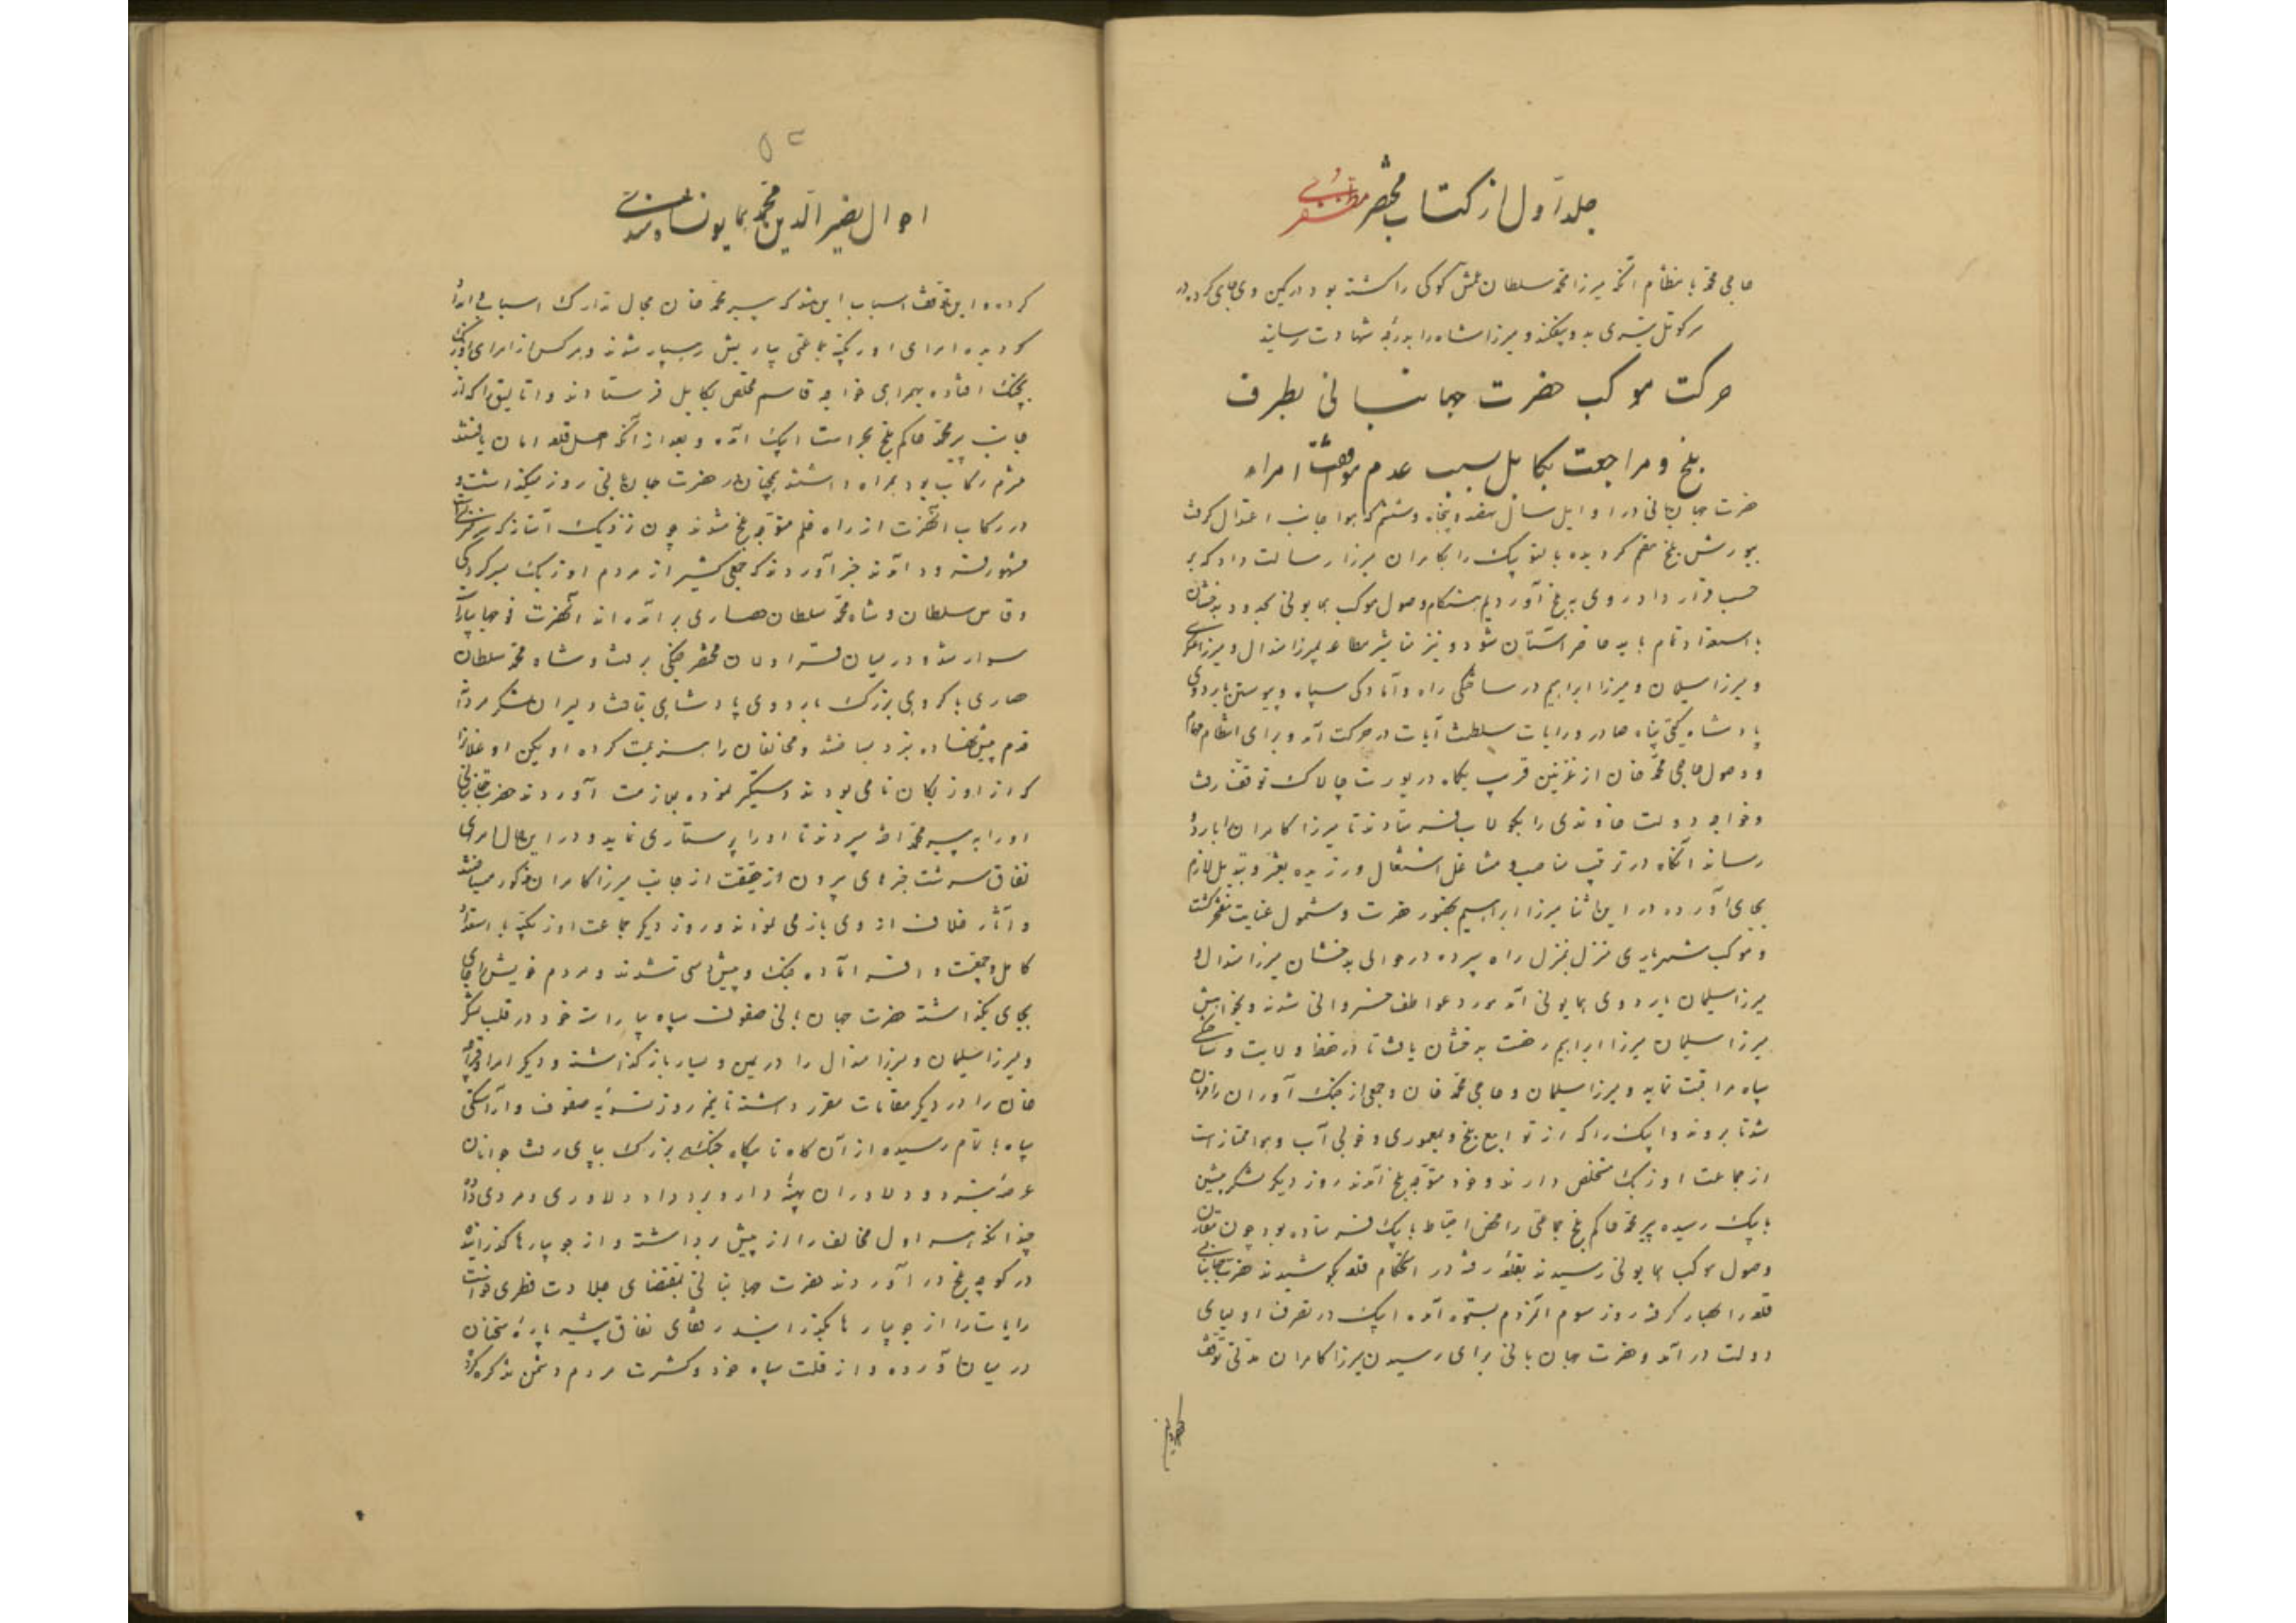 جلد اول از کتاب مختصر مظفری
حاجی محمد با منظام آنکه میرزا محمد سلطان عمش کوکی را کشته بود در کمین وی جای کرده در
سر کوتل تیری بدو بیفکند و میرزا شاه را بدرجه شهادت رسانید
حرکت موکب حضرت جهانبانی بطرف
بلخ و مراجعت بکابل بسبب عدم موافقت امراء
حضرت جهانبانی در اوایل سال نهصد و پنجاه و ششم که هوا جانب اعتدال گرفت
بیورش بلخ مصمم گردیده بالتو بیک را بکامران میرزا رسالت داد که بر
حسب قرار داد روی به بلخ آوردیم هنگام وصول موکب همایونی بحدود بدخشان
با استعداد تمام باید حاضر آستان شود و نیز مناشیر مطاعه بمیرزا هندال و میرزا عسکری
و میرزا سلیمان و میرزا ابراهیم در ساختگی راه و آمادگی سپاه و پیوستن باردوی
پادشاه گیتی پناه صادر و رایات سلطنت آیات در حرکت آمد و برای انتظام مهام
و وصول حاجی محمد خان از غزنین قریب یکماه در یورت چالاک توقف رفت
و خواجه دولت خاوندی را بکولاب فرستادند تا میرزا کامران را باردو
رساند آنگاه در ترتیب مناصب و مشاغل اشتغال ورزیده تغییر و تبدیل لازم
بجای آورده در این اثنا میرزا ابراهیم بحضور حضرت و مشمول عنایت مفتخر گشت
و موکب شهریاری منزل بمنزل راه سپرده در حوالی بدخشان میرزا هندال و
میرزا سلیمان باردوی همایونی آمد مورد عواطف خسروانی شدند و بخواهش
میرزا سلیمان میرزا ابراهیم رخصت بدخشان یافت تا در حفظ ولایت و ساختگی
سپاه مراقبت نماید و میرزا سلیمان و حاجی محمد خان و جمعی از جنگ آوران را فرمان
شد تا بروند و ایبک را که از توابع بلخ و بمعموری و خوبی آب و هوا ممتاز است
از جماعت اوزبک متخلص دارند و خود متوجه بلخ آمدند روز دیگر لشکر پیشین
بایبک رسیده پیر محمد حاکم بلخ جماعتی را محض احتیاط بایبک فرستاده بود چون مقارن
وصول موکب همایونی رسیدند بقلعه رفته در استحکام قلعه بکوشیدند حضرت جهانبانی
قلعه را بحصار گرفته روز سوم آنمردم بستوه آمده ایبک در تصرف اولیای
دولت درآمد و حضرت جهانبانی برای رسیدن میرزا کامران مدتی توقف
احوال نصیر الدین محمد همایون شاه
کرده و این توقف اسباب این شد که پیر محمد خان مجال تدارک اسبابی
گردیده امرای اوزبکیه جماعتی پیاپیش رهسپار شدند و هر کس از امرای اوزبک
بچنگ افتاده بهمراهی خواجه قاسم مخلص بکابل فرستادند و اتالیق را که از
جانب پیر محمد حاکم بلخ بحراست ایبک آمده و بعد از آنکه اهل قلعه امان یافتند
ملتزم رکاب بود همراه داشتند همچنان حضرت جهانبانی روز میگذاشت و
در رکاب آنحضرت از راه خلم متوجه بلخ شدند چون نزدیک آستانه که
مشهور است فرود آمدند خبر آوردند که جمعی کثیر از مردم اوزبک بسرکردگی
وقاص سلطان و شاه محمد سلطان حصاری برآمده اند آنحضرت فوجها بیاراسته
سوار شد و در میان قراولان مختصر جنگی برفت و شاه محمد سلطان
حصاری با گروهی بزرگ باردوی پادشاهی بتافت دلیران لشکر مردانه
قدم پیش نهاده نبرد بساختند و مخالفان را هزیمت کرده اویکن اوغلان را
که از اوزبکان نامی بودند دستگیر نموده بملازمت آوردند حضرت جهانبانی
او را به پیر محمد اخته سپردند تا او را پرستاری نماید و در این حال امرای
نفاق سرشت خبرهای بیرون از حقیقت از جانب میرزا کامران مذکور میساختند
و آثار خلاف از وی باز می نمودند و روز دیگر جماعت اوزبکیه با استعداد
کامل و جمعیت وافر آماده جنگ و پیشدستی شدند و مردم خویش را جای
بجای بگذاشته حضرت جهانبانی صفوف سپاه بیاراست خود در قلب لشکر
و میرزا سلیمان و میرزا هندال را در یمین و یسار باز گذاشت و دیگر امرا و قراچه
خان را در دیگر مقامات مقرر داشته تا نیمروز تسویه صفوف و آراستگی
سپاه باتمام رسیده از آن گاه تا بیگاه جنگی بزرگ بپای رفت جوانان
عرصه نبرد و دلاوران پهنه دار و برد داد دلاوری و مردی دادند
چندانکه هراول مخالف را از پیش برداشته و از جویبارها گذرانیده
در کوچه بلخ در آوردند حضرت جهانبانی بمقتضای جلادت فطری خواست
رایات را از جویبارها بگذراند رفقای نفاق پیشه پاره سخنان
در میان آورده و از قلت سپاه خود و کثرت مردم دشمن تذکره کرده